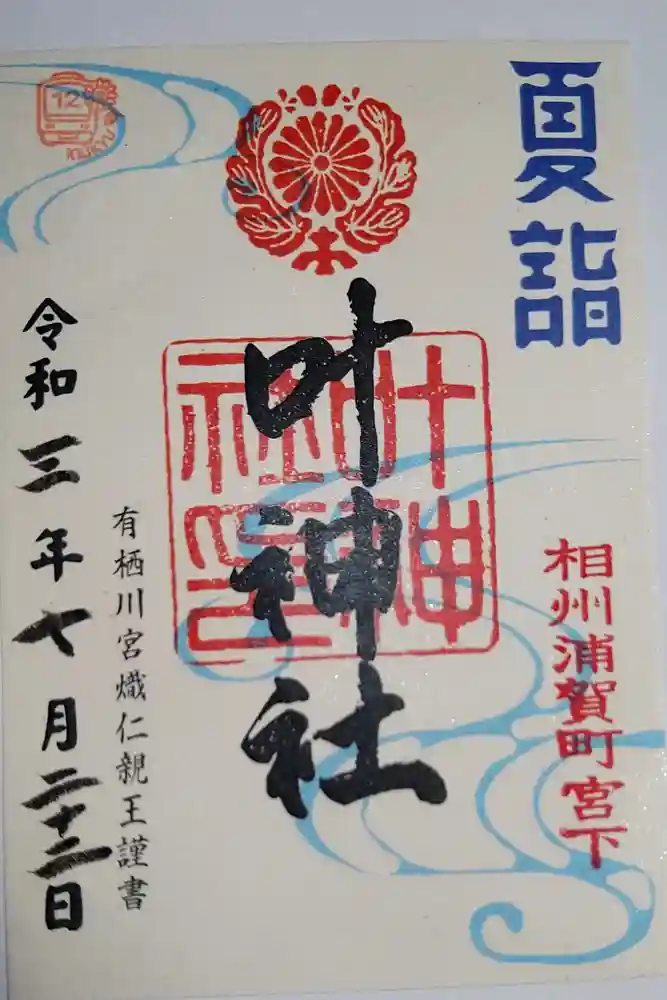 夏詣
相州浦賀町宮下
叶神社
叶神社印
有栖川宮熾仁親王謹書
令和三年七月二十二日
12
KEIKYU